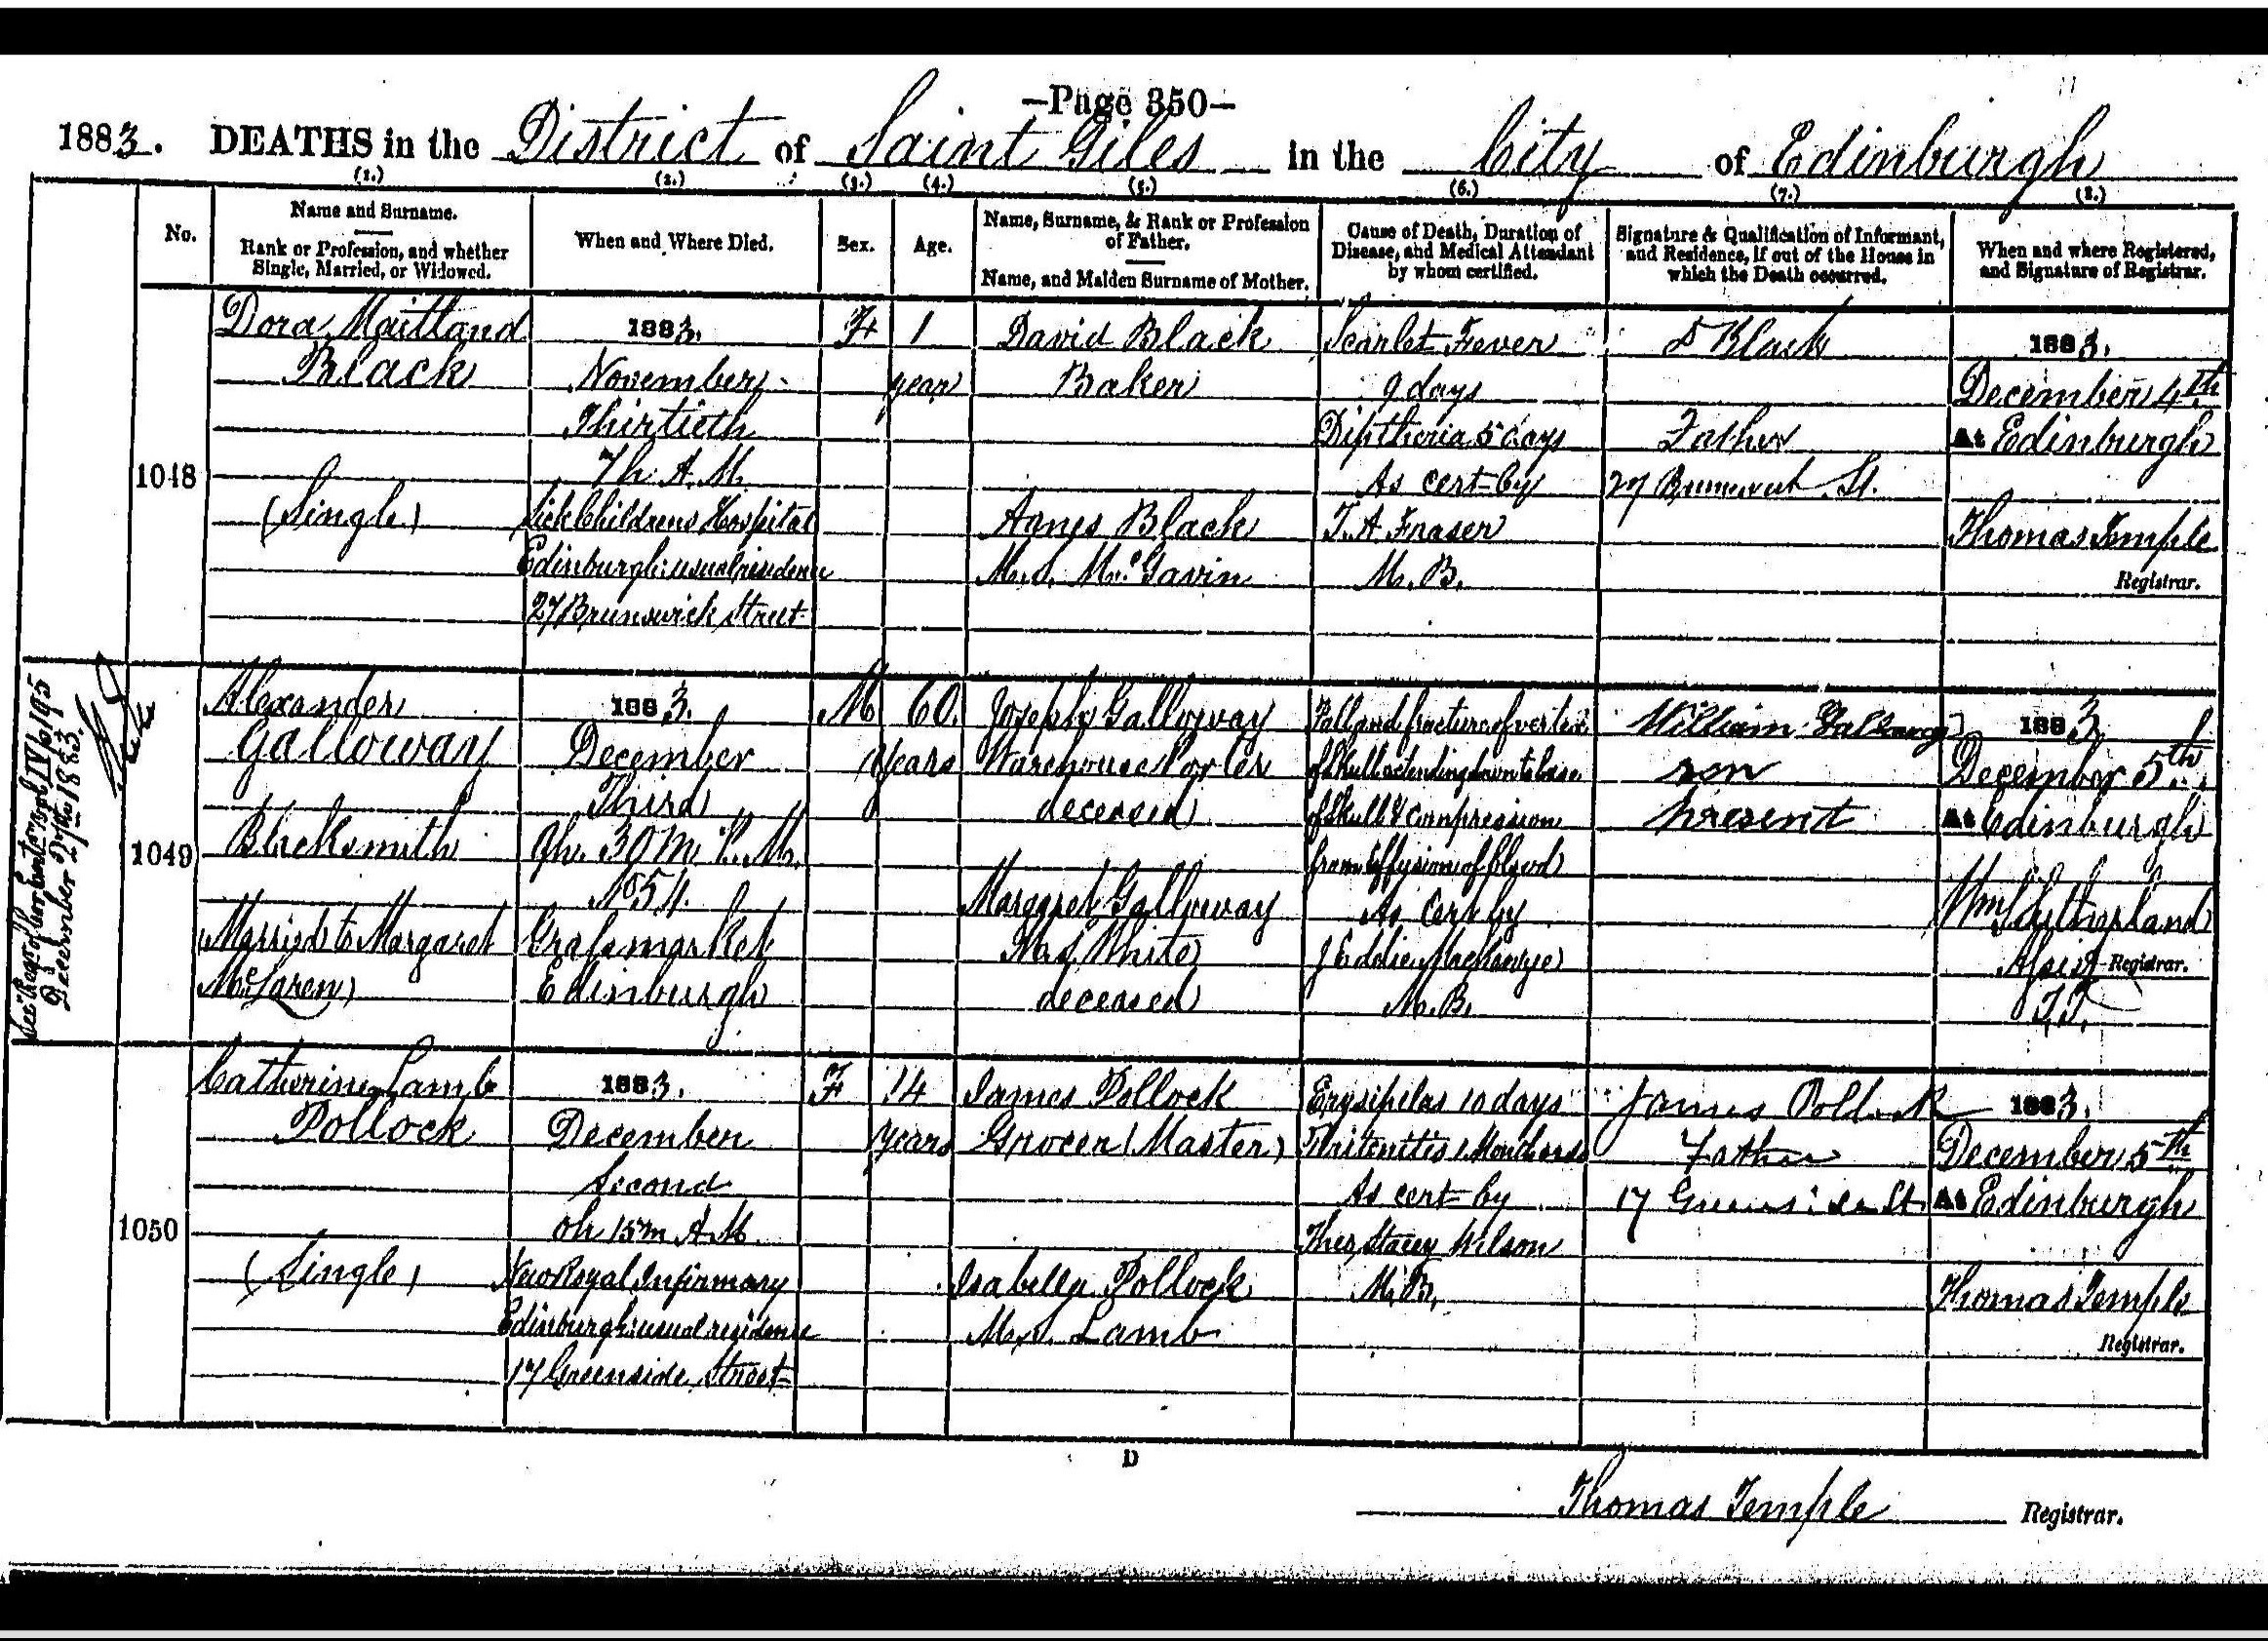 —Page 350—
1883. DEATHS in the District of Saint Giles in the City of Edinburgh
(1.) (2.) (3.) (4.) (5.) (6.) (7.) (8.)
No.
Name and Surname.
Rank or Profession, and whether
Single, Married, or Widowed.
When and Where Died.
Sex.
Age.
Name, Surname, & Rank or Profession
of Father.
Name, and Maiden Surname of Mother.
Cause of Death, Duration of
Disease, and Medical Attendant
by whom certified.
Signature & Qualification of Informant,
and Residence, if out of the House in
which the Death occurred.
When and where Registered,
and Signature of Registrar.
1048
Dora Maitland
Black
(Single)
1883.
November
Thirtieth
7h. A.M.
Sick Childrens Hospital
Edinburgh: usual residence
27 Brunswick Street
F
1
year
David Black
Baker
Agnes Black
M.S. McGavin
Scarlet Fever
9 days
Diptheria 5 days
As cert by
T. A. Fraser
M.B.
D Black
Father
27 Brunswick St.
1883.
December 4th
At Edinburgh
Thomas Temple
Registrar.
See Reg of Cor. Ent. Vol IV p 195
December 27th 1883.
1049
Alexander
Galloway
Blacksmith
Married to Margaret
McLaren)
1883.
December
Third
9h. 30m P.M.
No 54.
Grassmarket
Edinburgh
M
60.
years
Joseph Galloway
Warehouse Porter
deceased
Margaret Galloway
M.S. White
deceased
Fall and fracture of vertex
of skull extending down to base
of skull & compression
from Effusion of blood
As Cert by
J Eddie Mackenzie
M.B.
William Galloway
son
present
1883
December 5th.
At Edinburgh
Wm Sutherland
Assist Registrar.
T.T.
1050
Catherine Lamb
Pollock
(Single)
1883.
December
Second
0h 15m A.M.
New Royal Infirmary
Edinburgh: usual residence
17 Greenside Street
F
14
years
James Pollock
Grocer (Master)
Isabella Pollock
M.S. Lamb
Erysipelas 10 days
As cert by
Theo Stacey Wilson
M.B.
James Pollock
Father
17 Greenside St
1883.
December 5th
At Edinburgh
Thomas Temple
Registrar.
D
Thomas Temple Registrar.